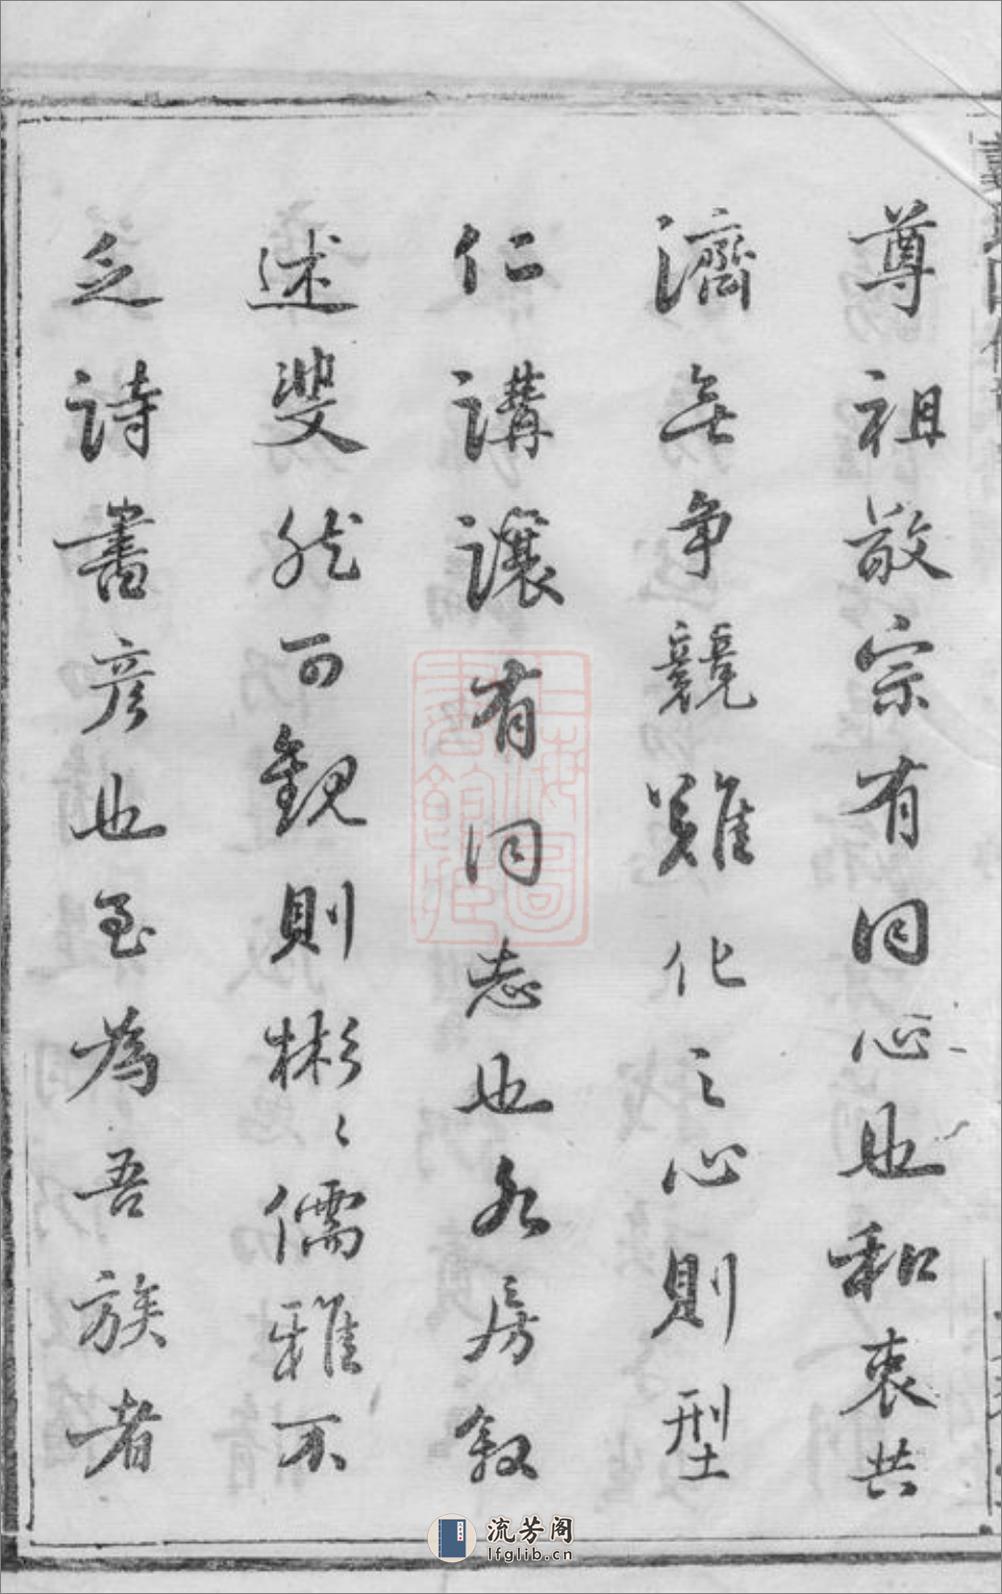 尊祖敬宗有同心也和衷共
濟無争競難化之心則型
仁講讓有同志也各房敘
述斐然可觀則彬〻儒雅不
乏詩書彦也至為吾族者
上海圖書館藏
流芳阁
lfglib.cn